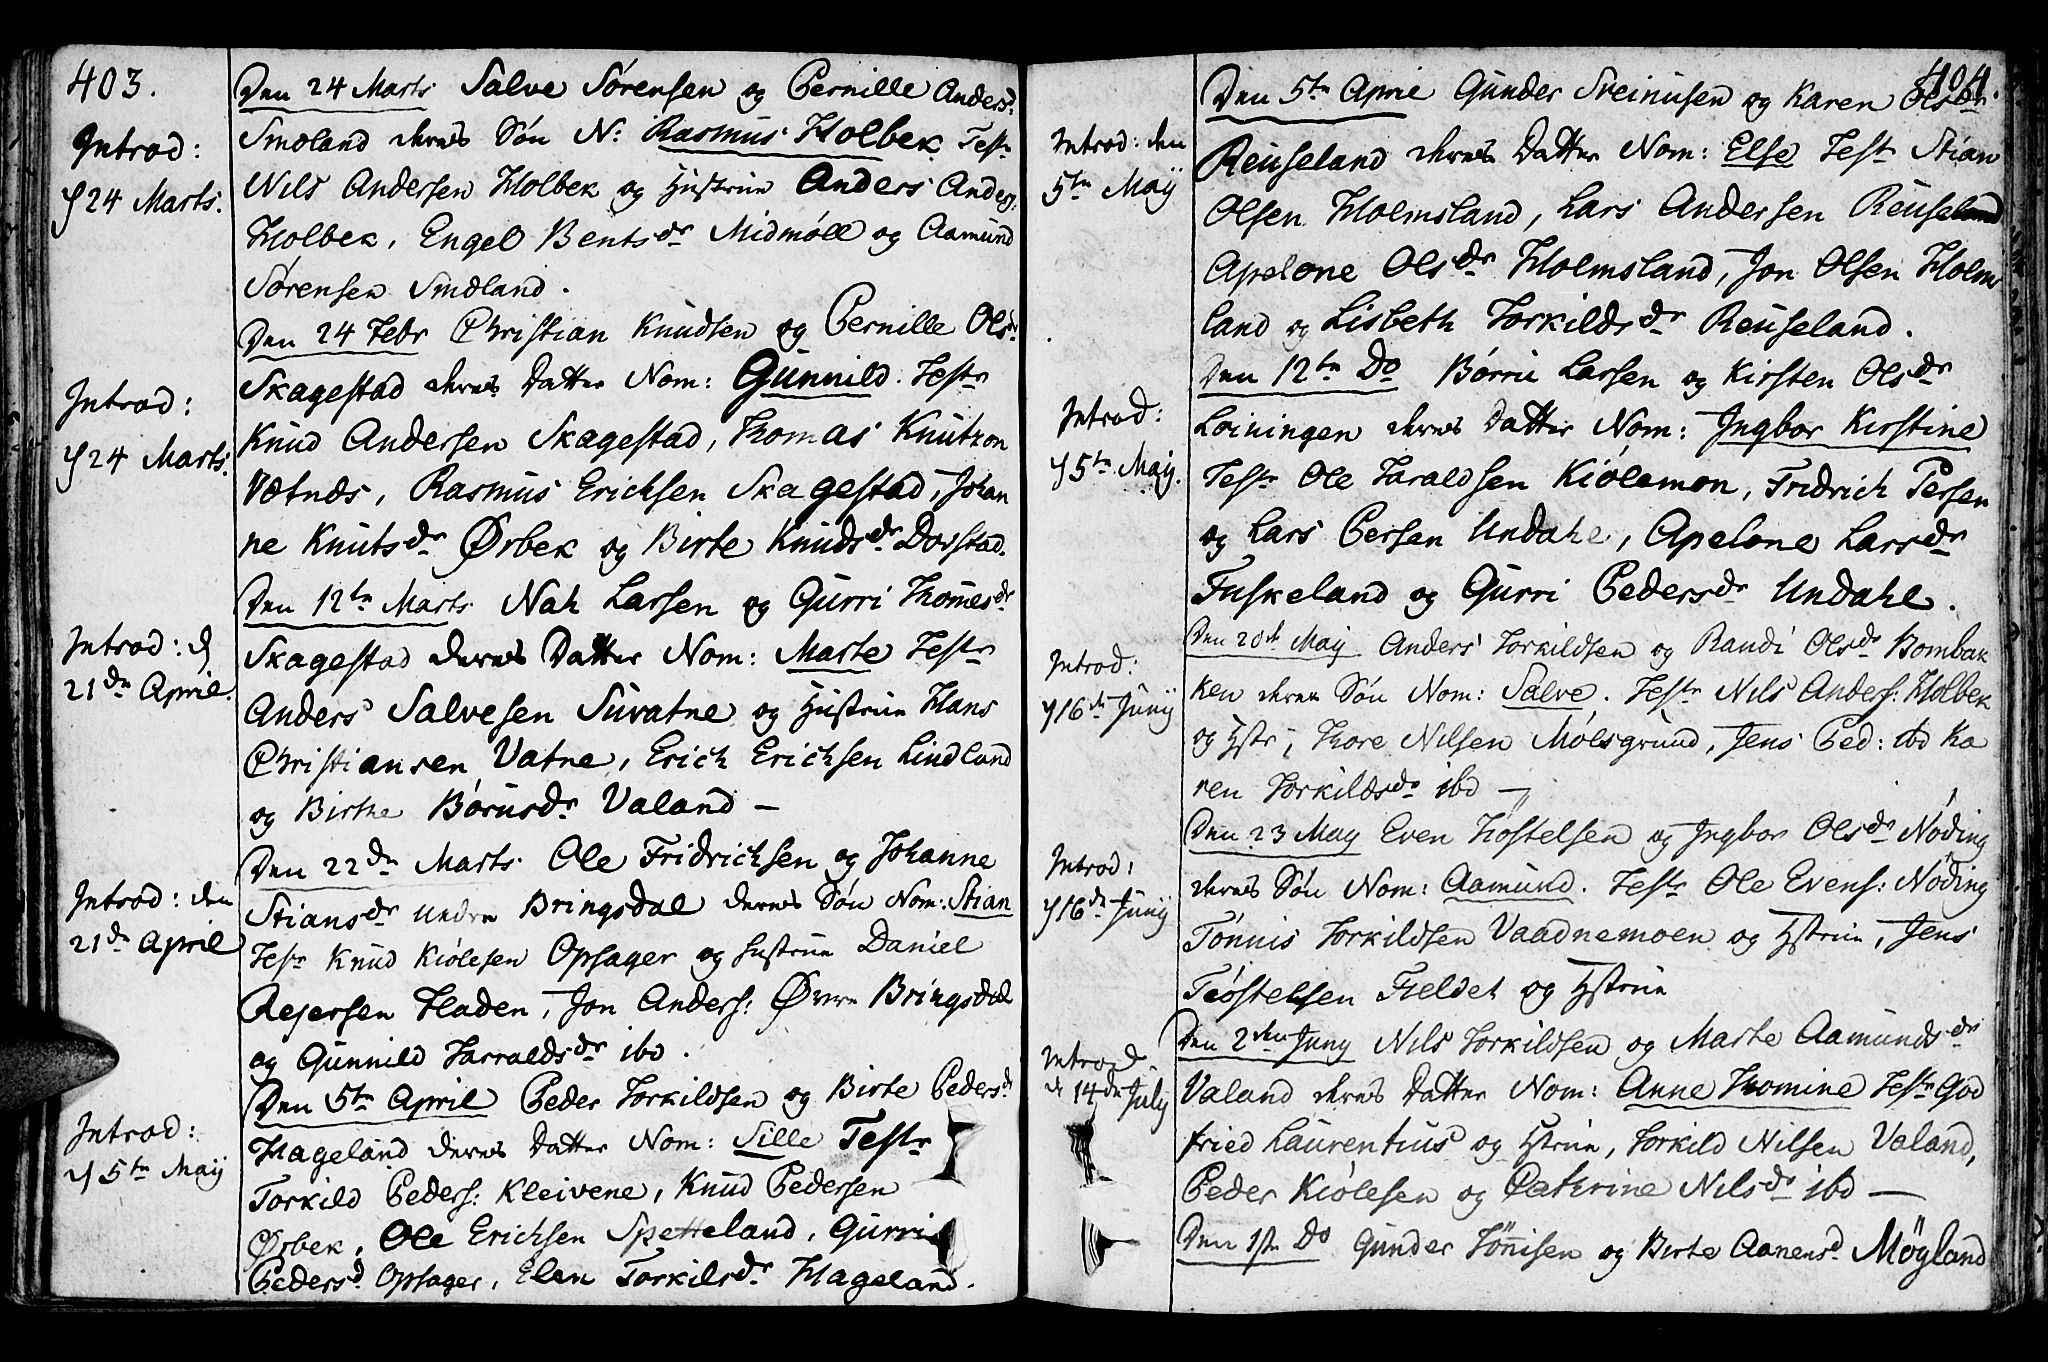 403.
Introd:
d 24 Marts.
Den 24 Marts Salve Sørensen og Pernille Andersd.
Smedland deres Søn N: Rasmus Holbek Test
Nils Andersen Holbek og Hustrue Anders Anders:
Holbek, Engel Bentsdr Midmøll og Aamund
Sørensen Smedland.
Introd:
d 24 Marts.
Den 24 Febr Christian Knudsen og Pernille Olsdr
Skagestad deres Datter Nom: Gunnild. Testr
Knud Andersen Skagestad, Thomas Knutson
Vætnes, Rasmus Erichsen Skagestad, Johan
ne Knutsdr Ørbek og Birte Knudsdr Dorstad.
Introd: d
21de April.
Den 12te Marts Nah Larsen og Gurri Thomesdr
Skagestad deres Datter Nom: Marte Testr
Anders Salvesen Suvatne og Hustrue Hans
Christiansen Vatne, Erich Erichsen Lindland
og Birthe Børusdr Valand —
Introd: den
21de April
Den 22de Marts Ole Fridrichsen og Johanne
Stiansdr Undre Bringsdal deres Søn Nom: Stian
Testr Knud Kiølesen Opsager og Hustrue Daniel
Rejersen Hladen, Jon Anders: Øvre Bringsdal
og Gunnild Harraldsdr ibd.
Introd:
d 5te Maij
Den 5te April Peder Torkildsen og Birte Pedersdr
Hageland deres Datter Nom: Sille Testr
Torkild Peders: Kleivene, Knud Pedersen
Ørbek, Ole Erichsen Spetteland, Gurri
Pedersd Opsager, Elen Torkilsdr Hageland.
404.
Introd: den
5te Maij
Den 5te Aprie Gunder Sveinusen og Karen Olsdr
Reuseland deres Datter Nom: Else Testr Stian
Olsen Holmsland, Lars Andersen Reuseland
Apelone Olsdr Holmsland, Jon Olsen Holms
land og Lisbeth Torkildsdr Reuseland.
Introd:
d 5te Maij.
Den 12te Do Børrie Larsen og Kirsten Olsdr
Løiningen deres Datter Nom: Ingbor Kirstine
Testr Ole Haraldsen Kiølemon, Fridrich Persen
og Lars Persen Undahl, Apelone Larsdr
Fuskeland og Gurri Pedersdr Undahl.
Introd:
d 16de Junij
Den 20de Maij Anders Torkildsen og Randi Olsdr Bombak
ken deres Søn Nom: Salve. Testr Nils Anders: Holbek
og Hstr, Thore Nilsen Mølsgrund, Jens Ped: ibd Ka
ren Torkildsdr ibd —
Introd:
d 16de Junij
Den 23 May Even Tostelsen og Ingbor Olsdr Nøding
deres Søn Nom: Aamund. Testr Ole Evens: Nøding
Tønnis Torkildsen Vaadnemoen og Hstrue, Jens
Tiøstelsen Fieldet og Hstrue
Introd
d 14de July
Den 2den Juny Nils Torkildsen og Marte Aamundsdr
Valand deres Datter Nom: Anne Thomine Testr God
fried Laurentius og Hstrue, Torkild Nilsen Valand,
Peder Kiølesen og Cathrine Nilsdr ibd —
Den 1ste Do Gunder Tönnisen og Birte Aanensd. Møgland